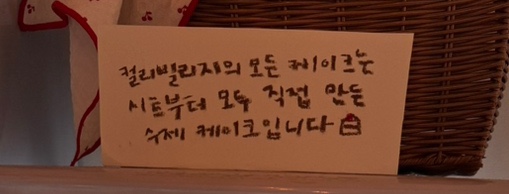 컬리빌리지의 모든 케이크는
시트부터 모두 직접 만든
수제 케이크입니다